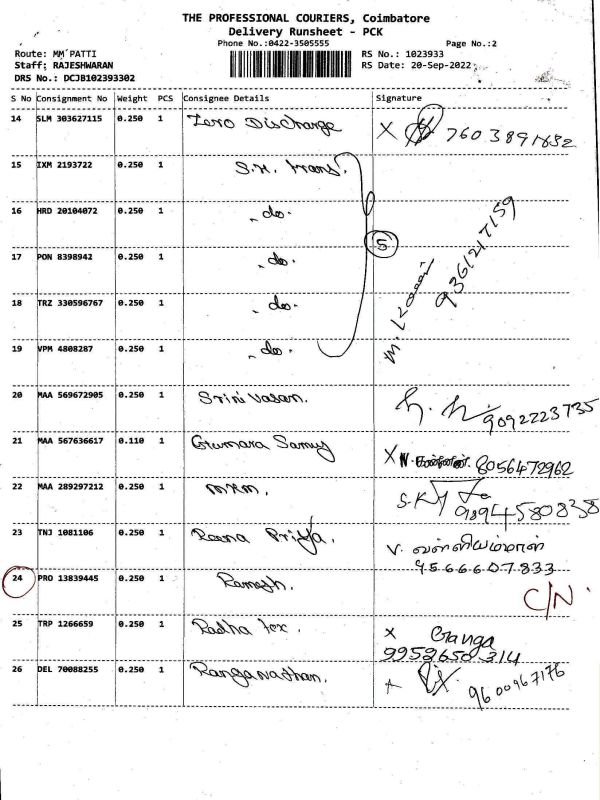 THE PROFESSIONAL COURIERS, Coimbatore
Delivery Runsheet - PCK
Phone No.:0422-3505555
Page No.:2
Route: MM PATTI
RS No.: 1023933
Staff: RAJESHWARAN
RS Date: 20-Sep-2022
DRS No.: DCJB102393302
S No Consignment No Weight PCS Consignee Details Signature
14 SLM 303627115 0.250 1 Zero Discharge X 7603891632
15 IXM 2193722 0.250 1 S.H. trans.
16 HRD 20104072 0.250 1 - do -
5
9361217159
17 PON 8398942 0.250 1 - do -
18 TRZ 330596767 0.250 1 - do -
19 VPM 4808287 0.250 1 - do -
20 MAA 569672905 0.250 1 Srinivasan. 9092223735
21 MAA 567636617 0.110 1 Gumara Samy X N. 8056472962
22 MAA 289297212 0.250 1 MKM. 9894580838
23 TNJ 1081106 0.250 1 Reena Priya. V. வள்ளியம்மாள்
9566607833
24 PRO 13839445 0.250 1 Ramesh. C/N
25 TRP 1266659 0.250 1 Radha tex. X Ganga
9952650314
26 DEL 70088255 0.250 1 Ranganathan. 9600967176